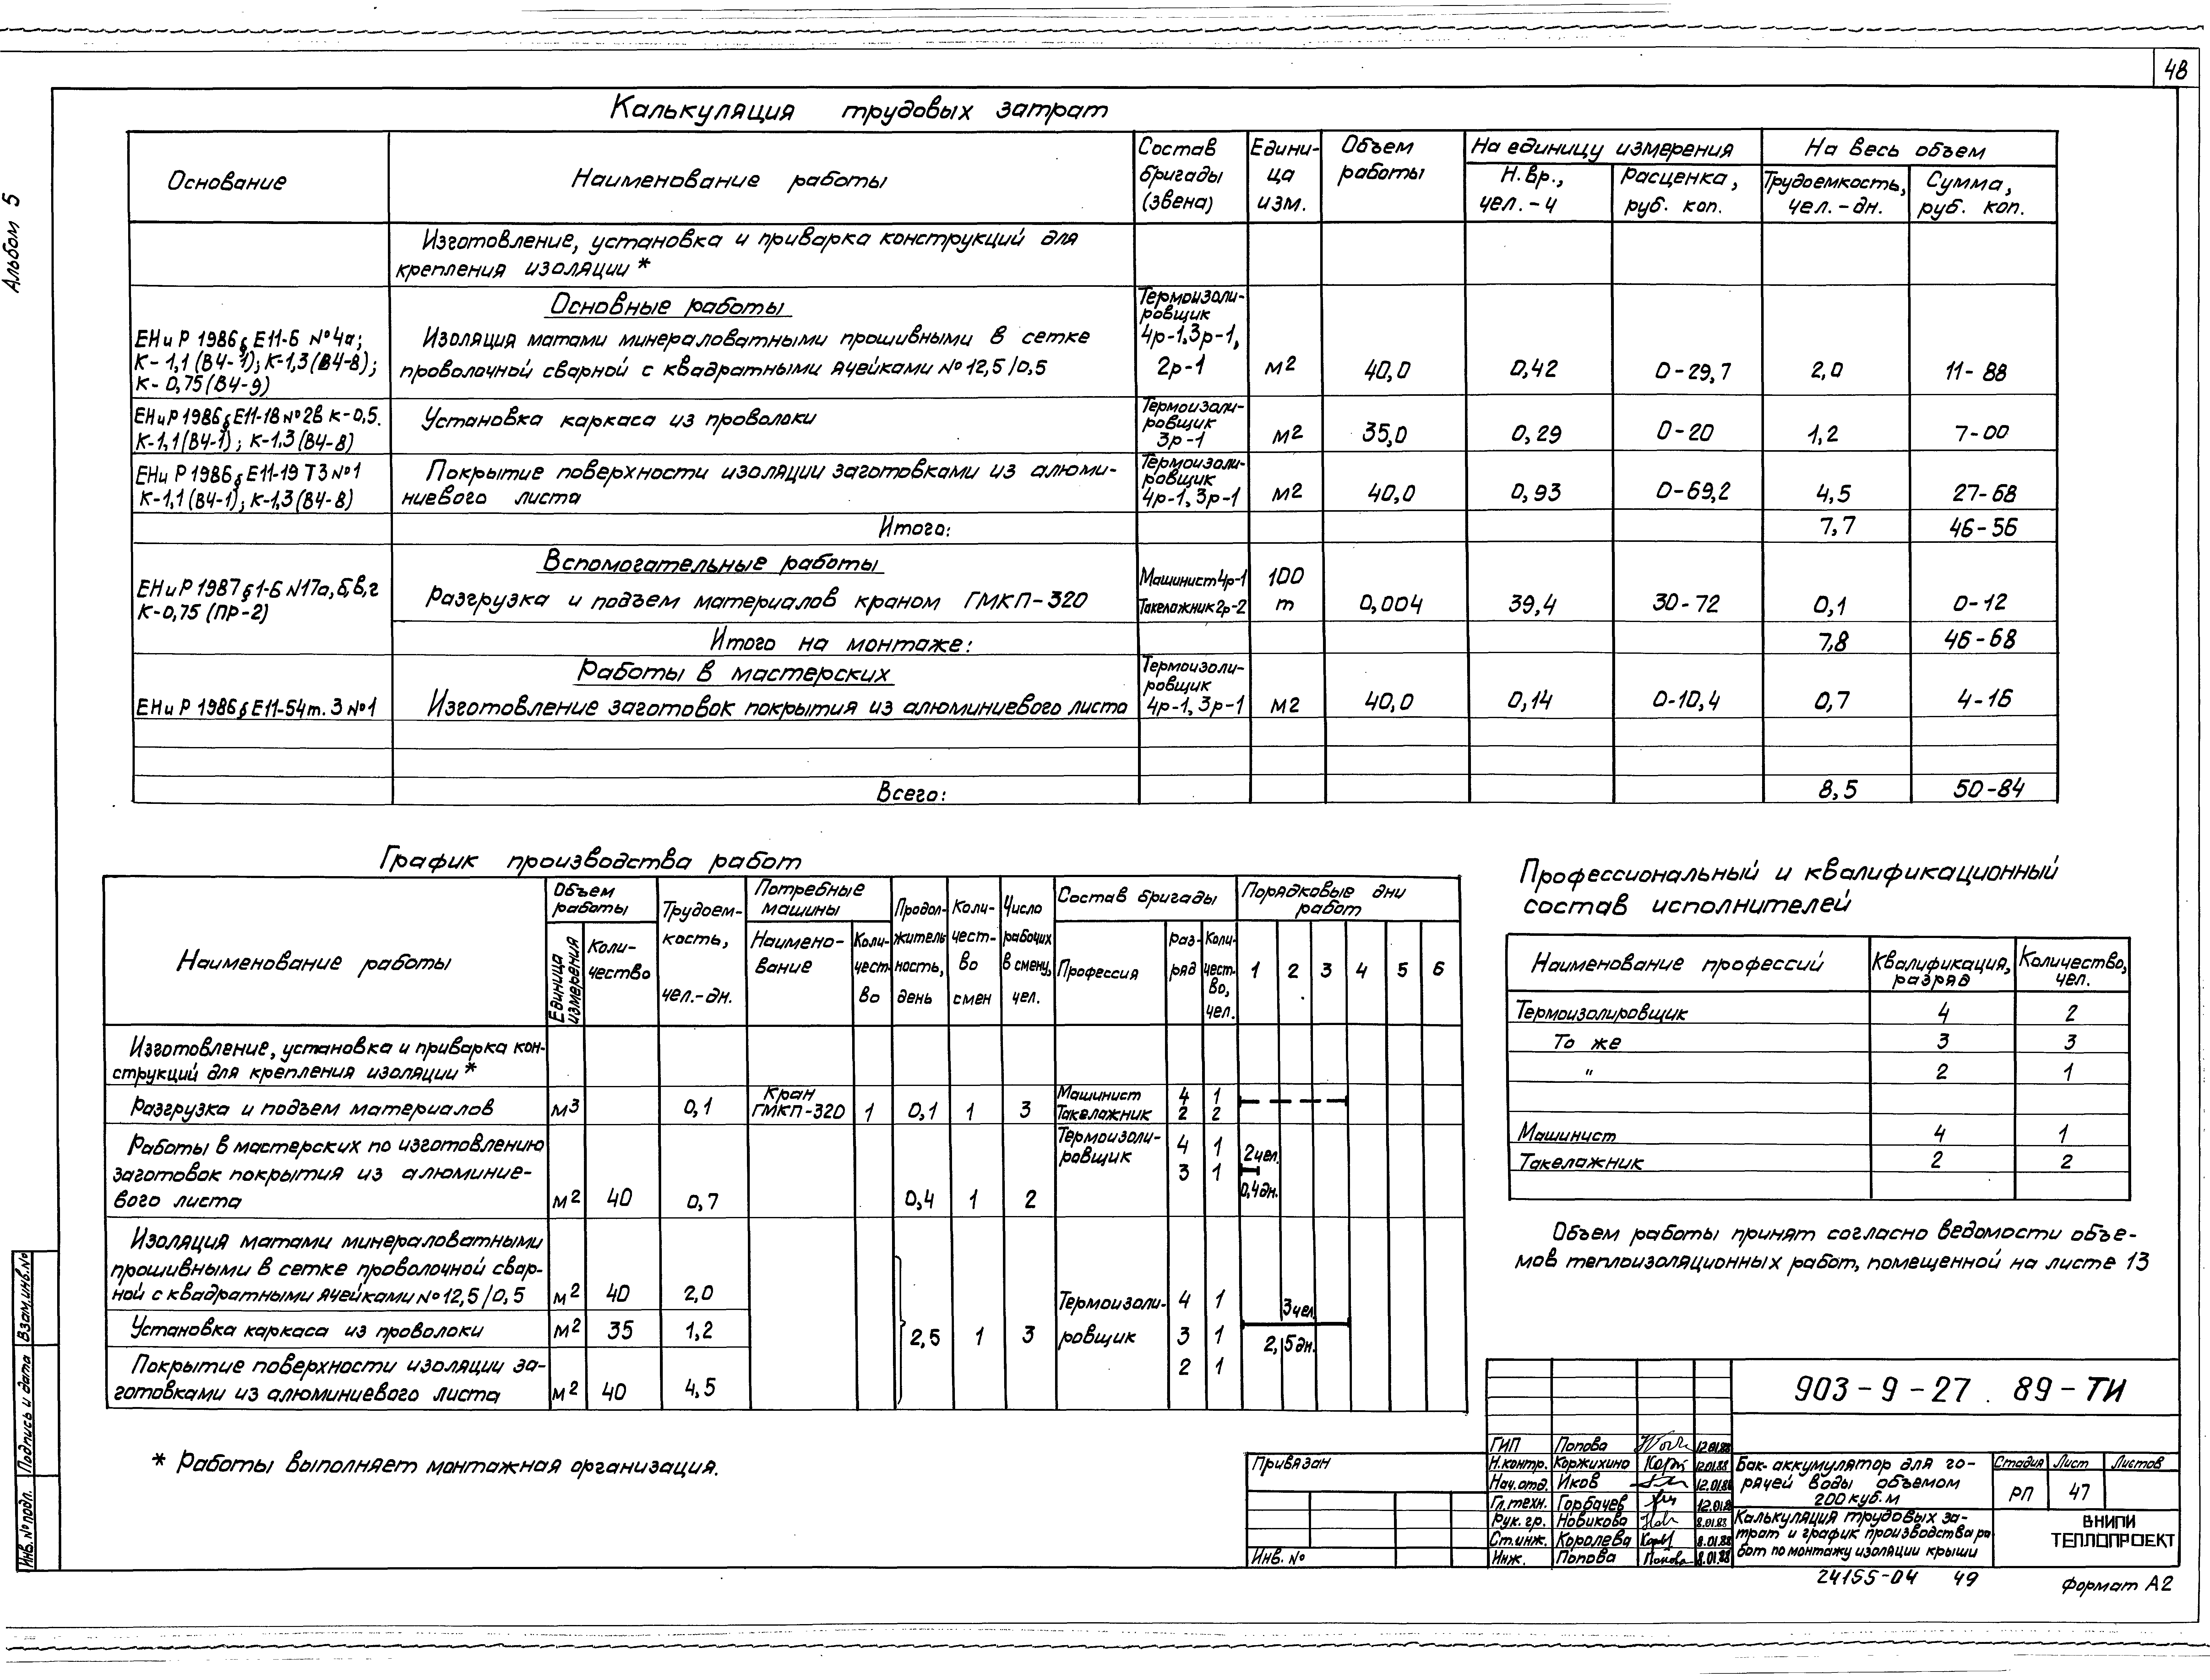 48
Альбом 5
Калькуляция трудовых затрат
Основание
Наименование работы
Состав бригады (звена)
Едини-ца изм.
Объем работы
На единицу измерения
Н.вр., чел.-ч
Расценка, руб. коп.
На весь объем
Трудоемкость, чел.-дн.
Сумма, руб. коп.
Изготовление, установка и приварка конструкций для
крепления изоляции *
Основные работы
ЕНиР 1986 § Е11-6 №4а;
К-1,1 (ВЧ-1); К-1,3 (ВЧ-8);
К-0,75 (ВЧ-9)
Изоляция матами минераловатными прошивными в сетке
проволочной сварной с квадратными ячейками №12,5/0,5
Термоизоли-
ровщик
4р-1, 3р-1,
2р-1 м2 40,0 0,42 0-29,7 2,0 11-88
ЕНиР 1986 § Е11-18 №2в К-0,5.
К-1,1 (ВЧ-1); К-1,3 (ВЧ-8)
Установка каркаса из проволоки
Термоизоли-
ровщик
3р-1 м2 35,0 0,29 0-20 1,2 7-00
ЕНиР 1986 § Е11-19 Т3 №1
К-1,1 (ВЧ-1); К-1,3 (ВЧ-8)
Покрытие поверхности изоляции заготовками из алюми-
ниевого листа
Термоизоли-
ровщик
4р-1, 3р-1 м2 40,0 0,93 0-69,2 4,5 27-68
Итого: 7,7 46-56
Вспомогательные работы
ЕНиР 1987 § 1-6 №17а,б,в,г
К-0,75 (ПР-2)
Разгрузка и подъем материалов краном ГМКП-320
Машинист 4р-1
Такелажник 2р-2
100
т 0,004 39,4 30-72 0,1 0-12
Итого на монтаже: 7,8 46-68
Работы в мастерских
ЕНиР 1986 § Е11-54 т. 3 №1
Изготовление заготовок покрытия из алюминиевого листа
Термоизоли-
ровщик
4р-1, 3р-1 м2 40,0 0,14 0-10,4 0,7 4-16
Всего: 8,5 50-84
График производства работ
Наименование работы
Объем работы
Единица измерения
Коли-чество
Трудоем-кость, чел.-дн.
Потребные машины
Наимено-вание
Коли-чест-во
Продол-житель-ность, день
Коли-чест-во смен
Число рабочих в смену, чел.
Состав бригады
Профессия
Раз-ряд
Коли-чест-во, чел.
Порядковые дни работ
1 2 3 4 5 6
Изготовление, установка и приварка кон-
струкций для крепления изоляции *
Разгрузка и подъем материалов м3 0,1
Кран
ГМКП-320 1 0,1 1 3
Машинист 4 1
Такелажник 2 2
Работы в мастерских по изготовлению
заготовок покрытия из алюминие-
вого листа м2 40 0,7 0,4 1 2
Термоизоли-
ровщик
4 1
3 1
2 чел.
0,4 дн.
Изоляция матами минераловатными
прошивными в сетке проволочной свар-
ной с квадратными ячейками №12,5/0,5 м2 40 2,0
Установка каркаса из проволоки м2 35 1,2
Покрытие поверхности изоляции за-
готовками из алюминиевого листа м2 40 4,5
2,5 1 3
Термоизоли-
ровщик
4 1
3 1
2 1
3 чел
2,5 дн.
* Работы выполняет монтажная организация.
Профессиональный и квалификационный
состав исполнителей
Наименование профессий
Квалификация, разряд
Количество, чел.
Термоизолировщик 4 2
То же 3 3
" 2 1
Машинист 4 1
Такелажник 2 2
Объем работы принят согласно ведомости объе-
мов теплоизоляционных работ, помещенной на листе 13
Взам.инв.№
Подпись и дата
Инв. № подл.
Привязан
Инв. №
903-9-27.89-ТИ
ГИП Попова 12.01.88
Н.контр. Коржихино 12.01.88
Нач.отд. Иков 12.01.88
Гл.техн. Горбачев 12.01.8
Рук.гр. Новикова 8.01.88
Ст.инж. Королева 8.01.88
Инж. Попова 8.01.88
Бак-аккумулятор для го-
рячей воды объемом
200 куб.м
Стадия Лист Листов
РП 47
Калькуляция трудовых за-
трат и график производства ра
бот по монтажу изоляции крыши
ВНИПИ
ТЕПЛОПРОЕКТ
24155-04 49
Формат А2